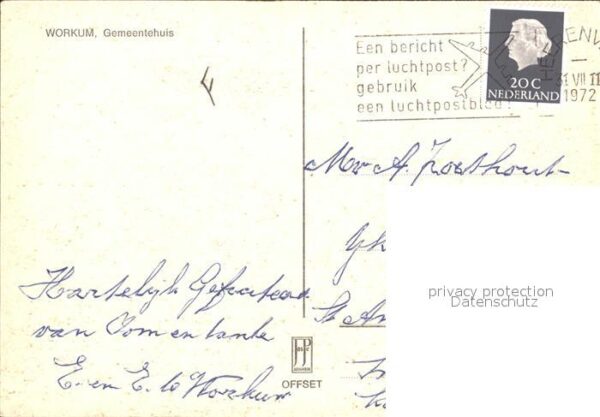 WORKUM, Gemeentehuis
Een bericht
per luchtpost?
gebruik
een luchtpostblad!
31 VII 11
1972
20 C
NEDERLAND
Mr A.
privacy protection
Datenschutz
St An
Hartelijk Gefeliciteerd
van Oom en tante
E. en E. te Workum
OFFSET